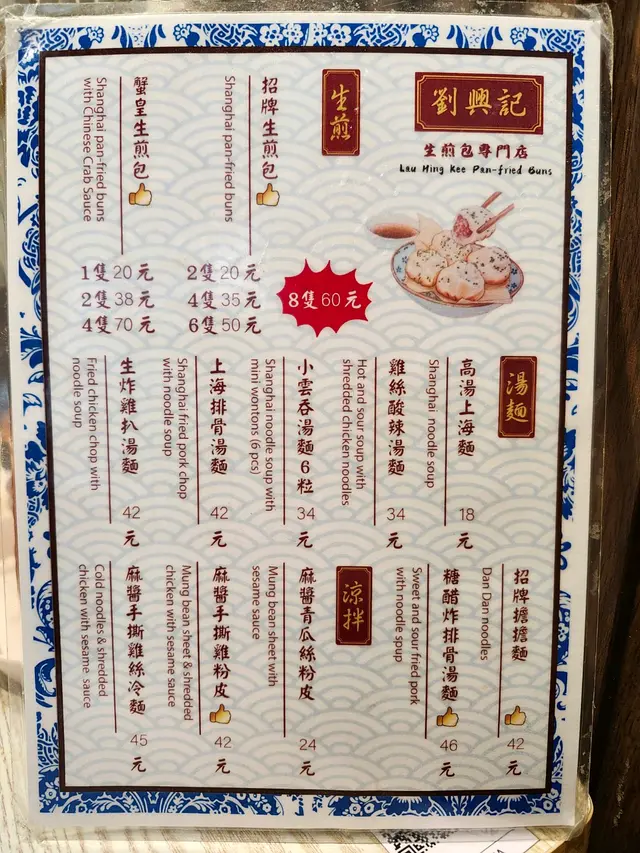 劉興記
生煎包專門店
Lau Hing Kee Pan-fried Buns
生煎
招牌生煎包
Shanghai pan-fried buns
2隻20元
4隻35元
6隻50元
8隻60元
蟹皇生煎包
Shanghai pan-fried buns
with Chinese Crab Sauce
1隻20元
2隻38元
4隻70元
湯麵
高湯上海麵
Shanghai noodle soup
18元
雞絲酸辣湯麵
Hot and sour soup with
shredded chicken noodles
34元
小雲吞湯麵6粒
Shanghai noodle soup with
mini wontons (6 pcs)
34元
上海排骨湯麵
Shanghai fried pork chop
with noodle soup
42元
生炸雞扒湯麵
Fried chicken chop with
noodle soup
42元
招牌擔擔麵
Dan Dan noodles
42元
糖醋炸排骨湯麵
Sweet and sour fried pork
with noodle spup
46元
涼拌
麻醬青瓜絲粉皮
Mung bean sheet with
sesame sauce
24元
麻醬手撕雞粉皮
Mung bean sheet & shredded
chicken with sesame sauce
42元
麻醬手撕雞絲冷麵
Cold noodles & shredded
chicken with sesame sauce
45元